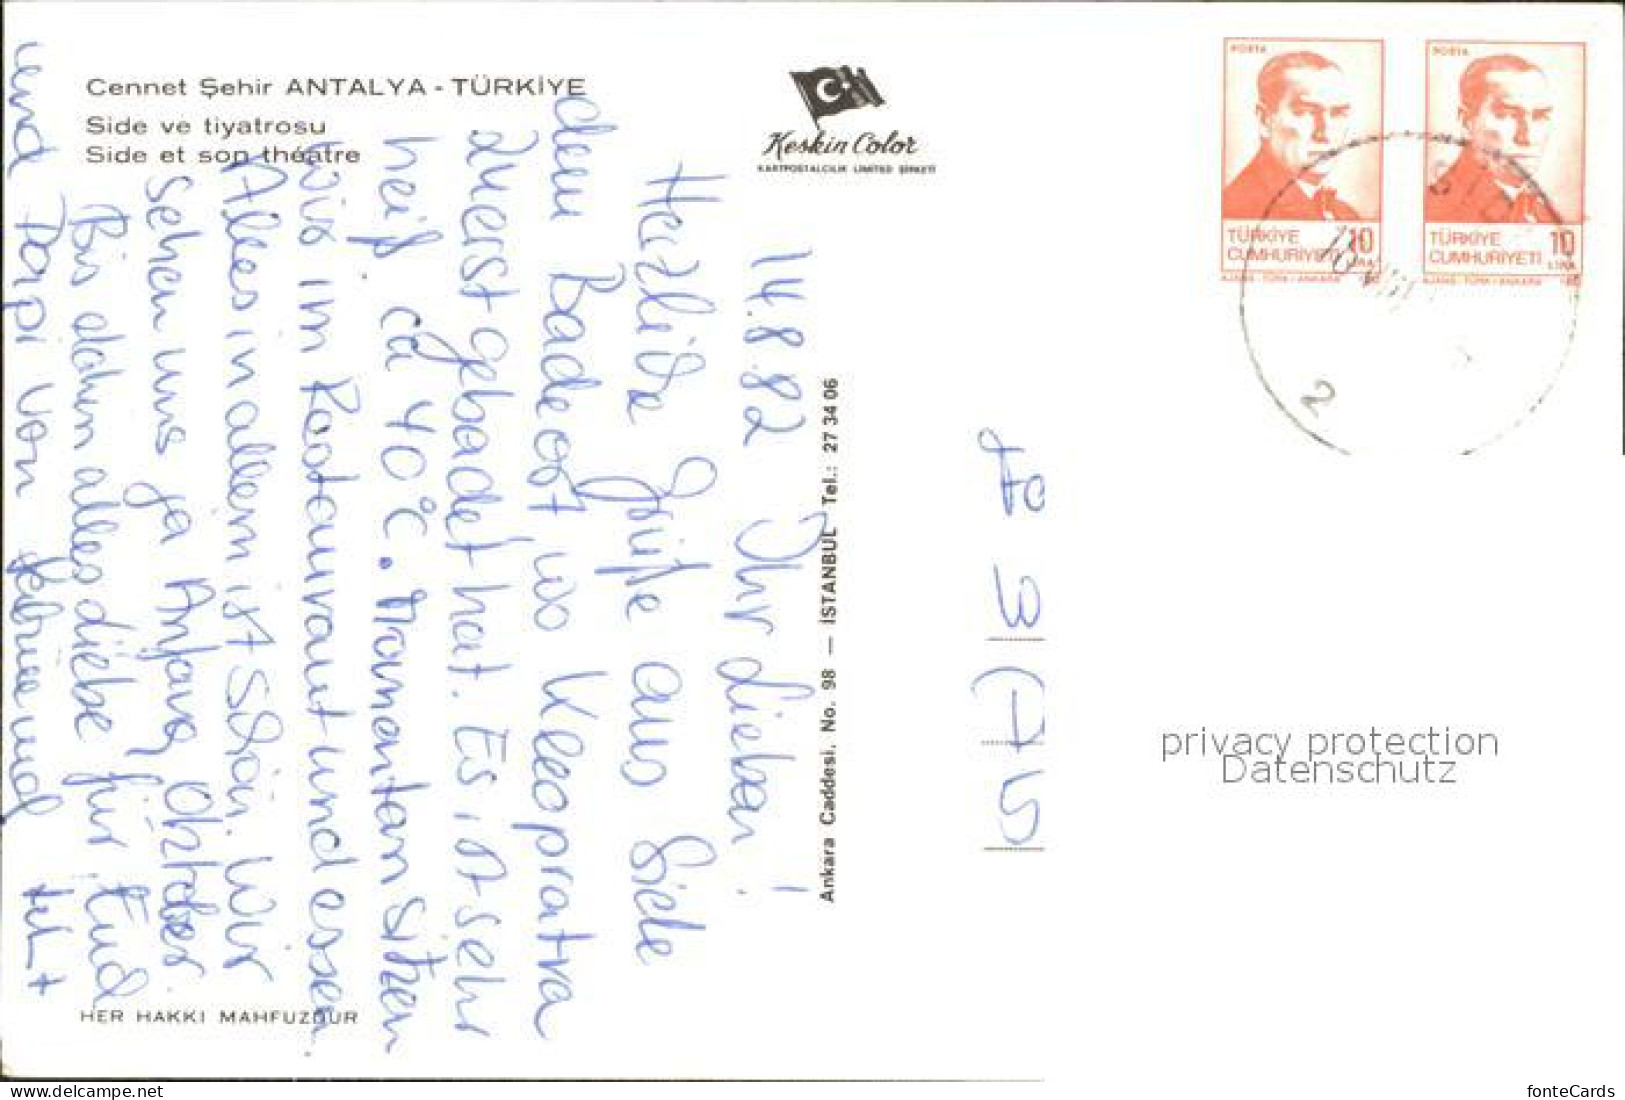 Cennet Şehir ANTALYA - TÜRKİYE
Side ve tiyatrosu
Side et son théatre
Keskin Color
KARTPOSTALCILIK LIMITED ŞIRKETI
Ankara Caddesi. No. 98 — İSTANBUL Tel.: 27 34 06
HER HAKKI MAHFUZDUR
POSTA
TÜRKİYE
CUMHURİYETİ
10
LİRA
AJANS - TÜRK / ANKARA
POSTA
TÜRKİYE
CUMHURİYETİ
10
LİRA
AJANS - TÜRK / ANKARA
2
14.8.82
Ihr Lieben!
Herzliche Grüße aus Side
dem Badeort wo Kleopratra
zuerst gebadet hat. Es ist sehr
heiß ca 40°C. Momentan sitzen
wir im Restaurant und essen.
Alles in allem ist schön. Wir
sehen uns ja Anfang Oktober.
Bis dahin alles Liebe für Euch
und von und
privacy protection
Datenschutz
fonteCards
www.delcampe.net